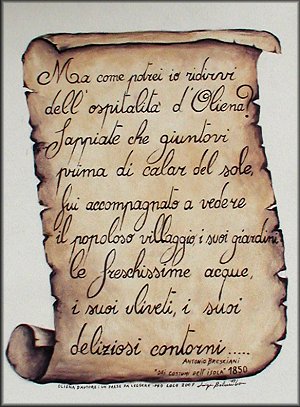 Ma come potrei io ridirvi
dell'ospitalità d'Oliena?
Sappiate che giuntovi
prima di calar del sole,
fui accompagnato a vedere
il popoloso villaggio, i suoi giardini
le freschissime acque,
i suoi uliveti, i suoi
deliziosi contorni.....
ANTONIO BRESCIANI
"DEI COSTUMI DELL'ISOLA" 1850
OLIENA D'AUTORE: UN PAESE DA LEGGERE PRO LOCO 2007